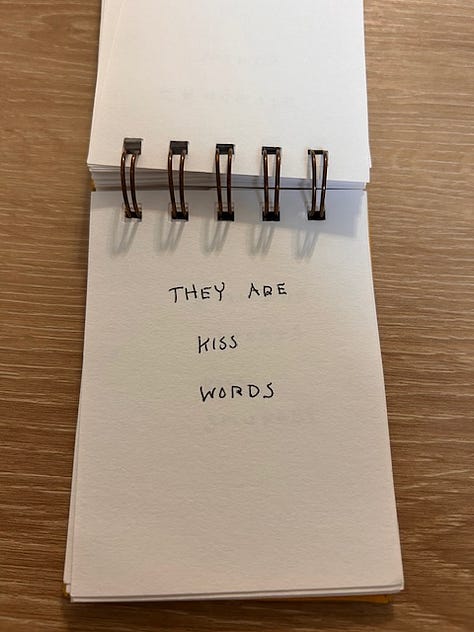 THEY ARE
KISS
WORDS